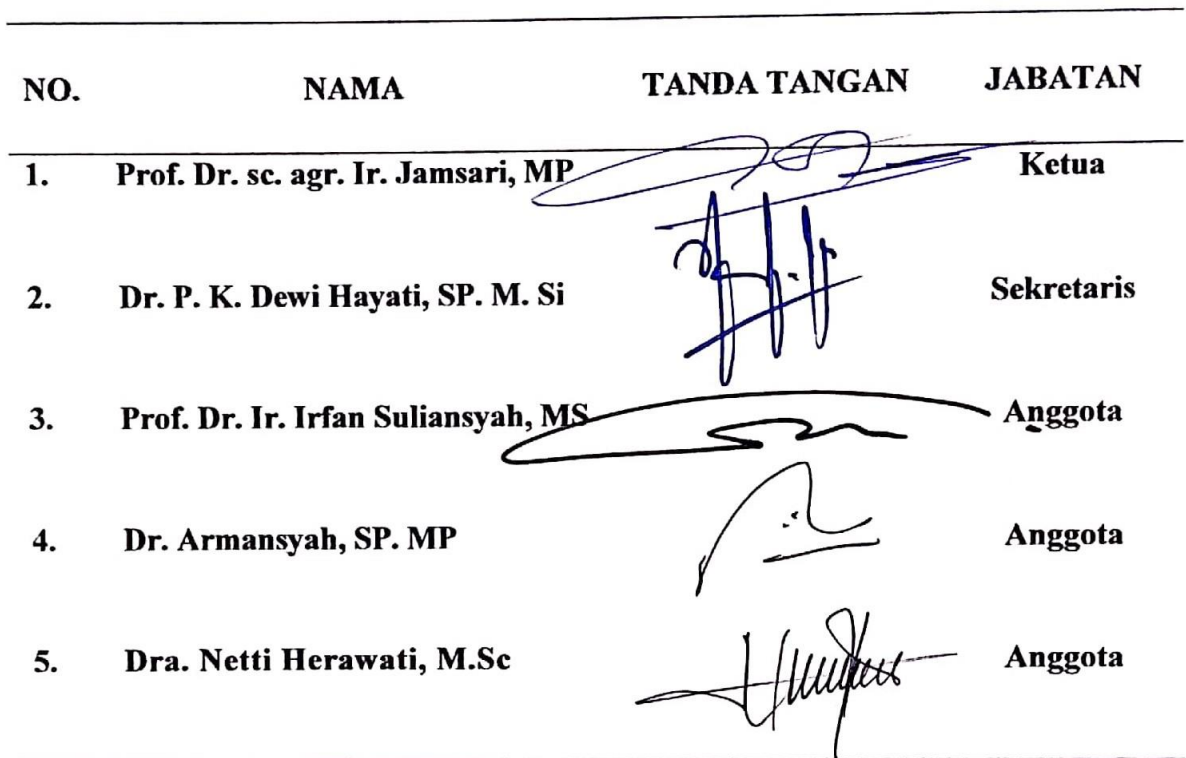 NO. NAMA TANDA TANGAN JABATAN
1. Prof. Dr. sc. agr. Ir. Jamsari, MP Ketua
2. Dr. P. K. Dewi Hayati, SP. M. Si Sekretaris
3. Prof. Dr. Ir. Irfan Suliansyah, MS Anggota
4. Dr. Armansyah, SP. MP Anggota
5. Dra. Netti Herawati, M.Sc Anggota